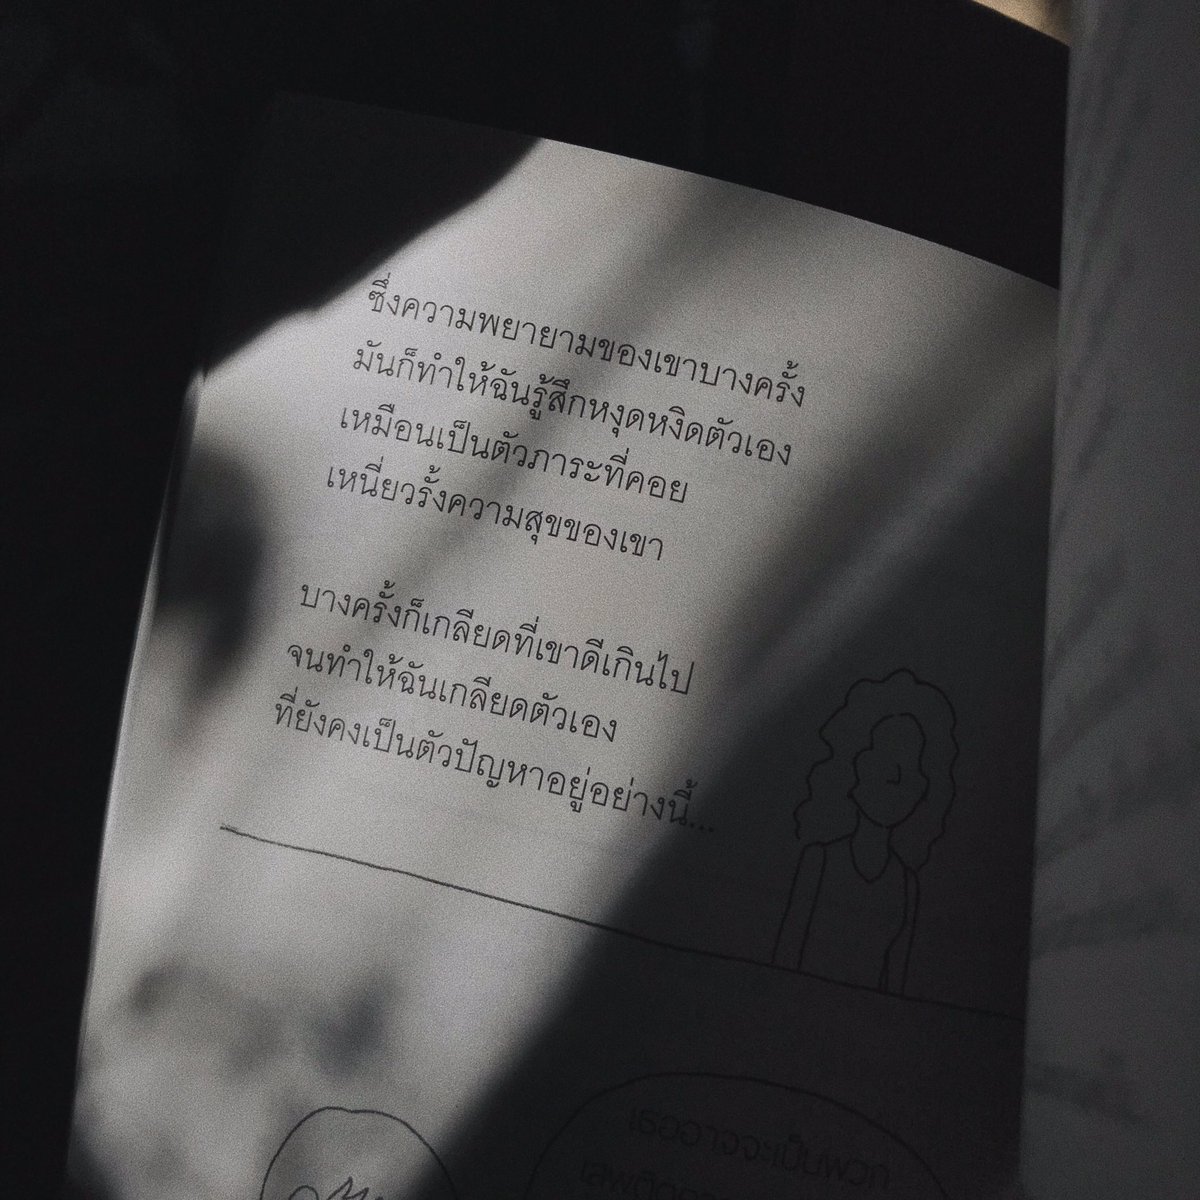 ซึ่งความพยายามของเขาบางครั้ง
มันก็ทำให้ฉันรู้สึกหงุดหงิดตัวเอง
เหมือนเป็นตัวภาระที่คอย
เหนี่ยวรั้งความสุขของเขา
บางครั้งก็เกลียดที่เขาดีเกินไป
จนทำให้ฉันเกลียดตัวเอง
ที่ยังคงเป็นตัวปัญหาอยู่อย่างนี้...
เธออาจจะเป็นพวก